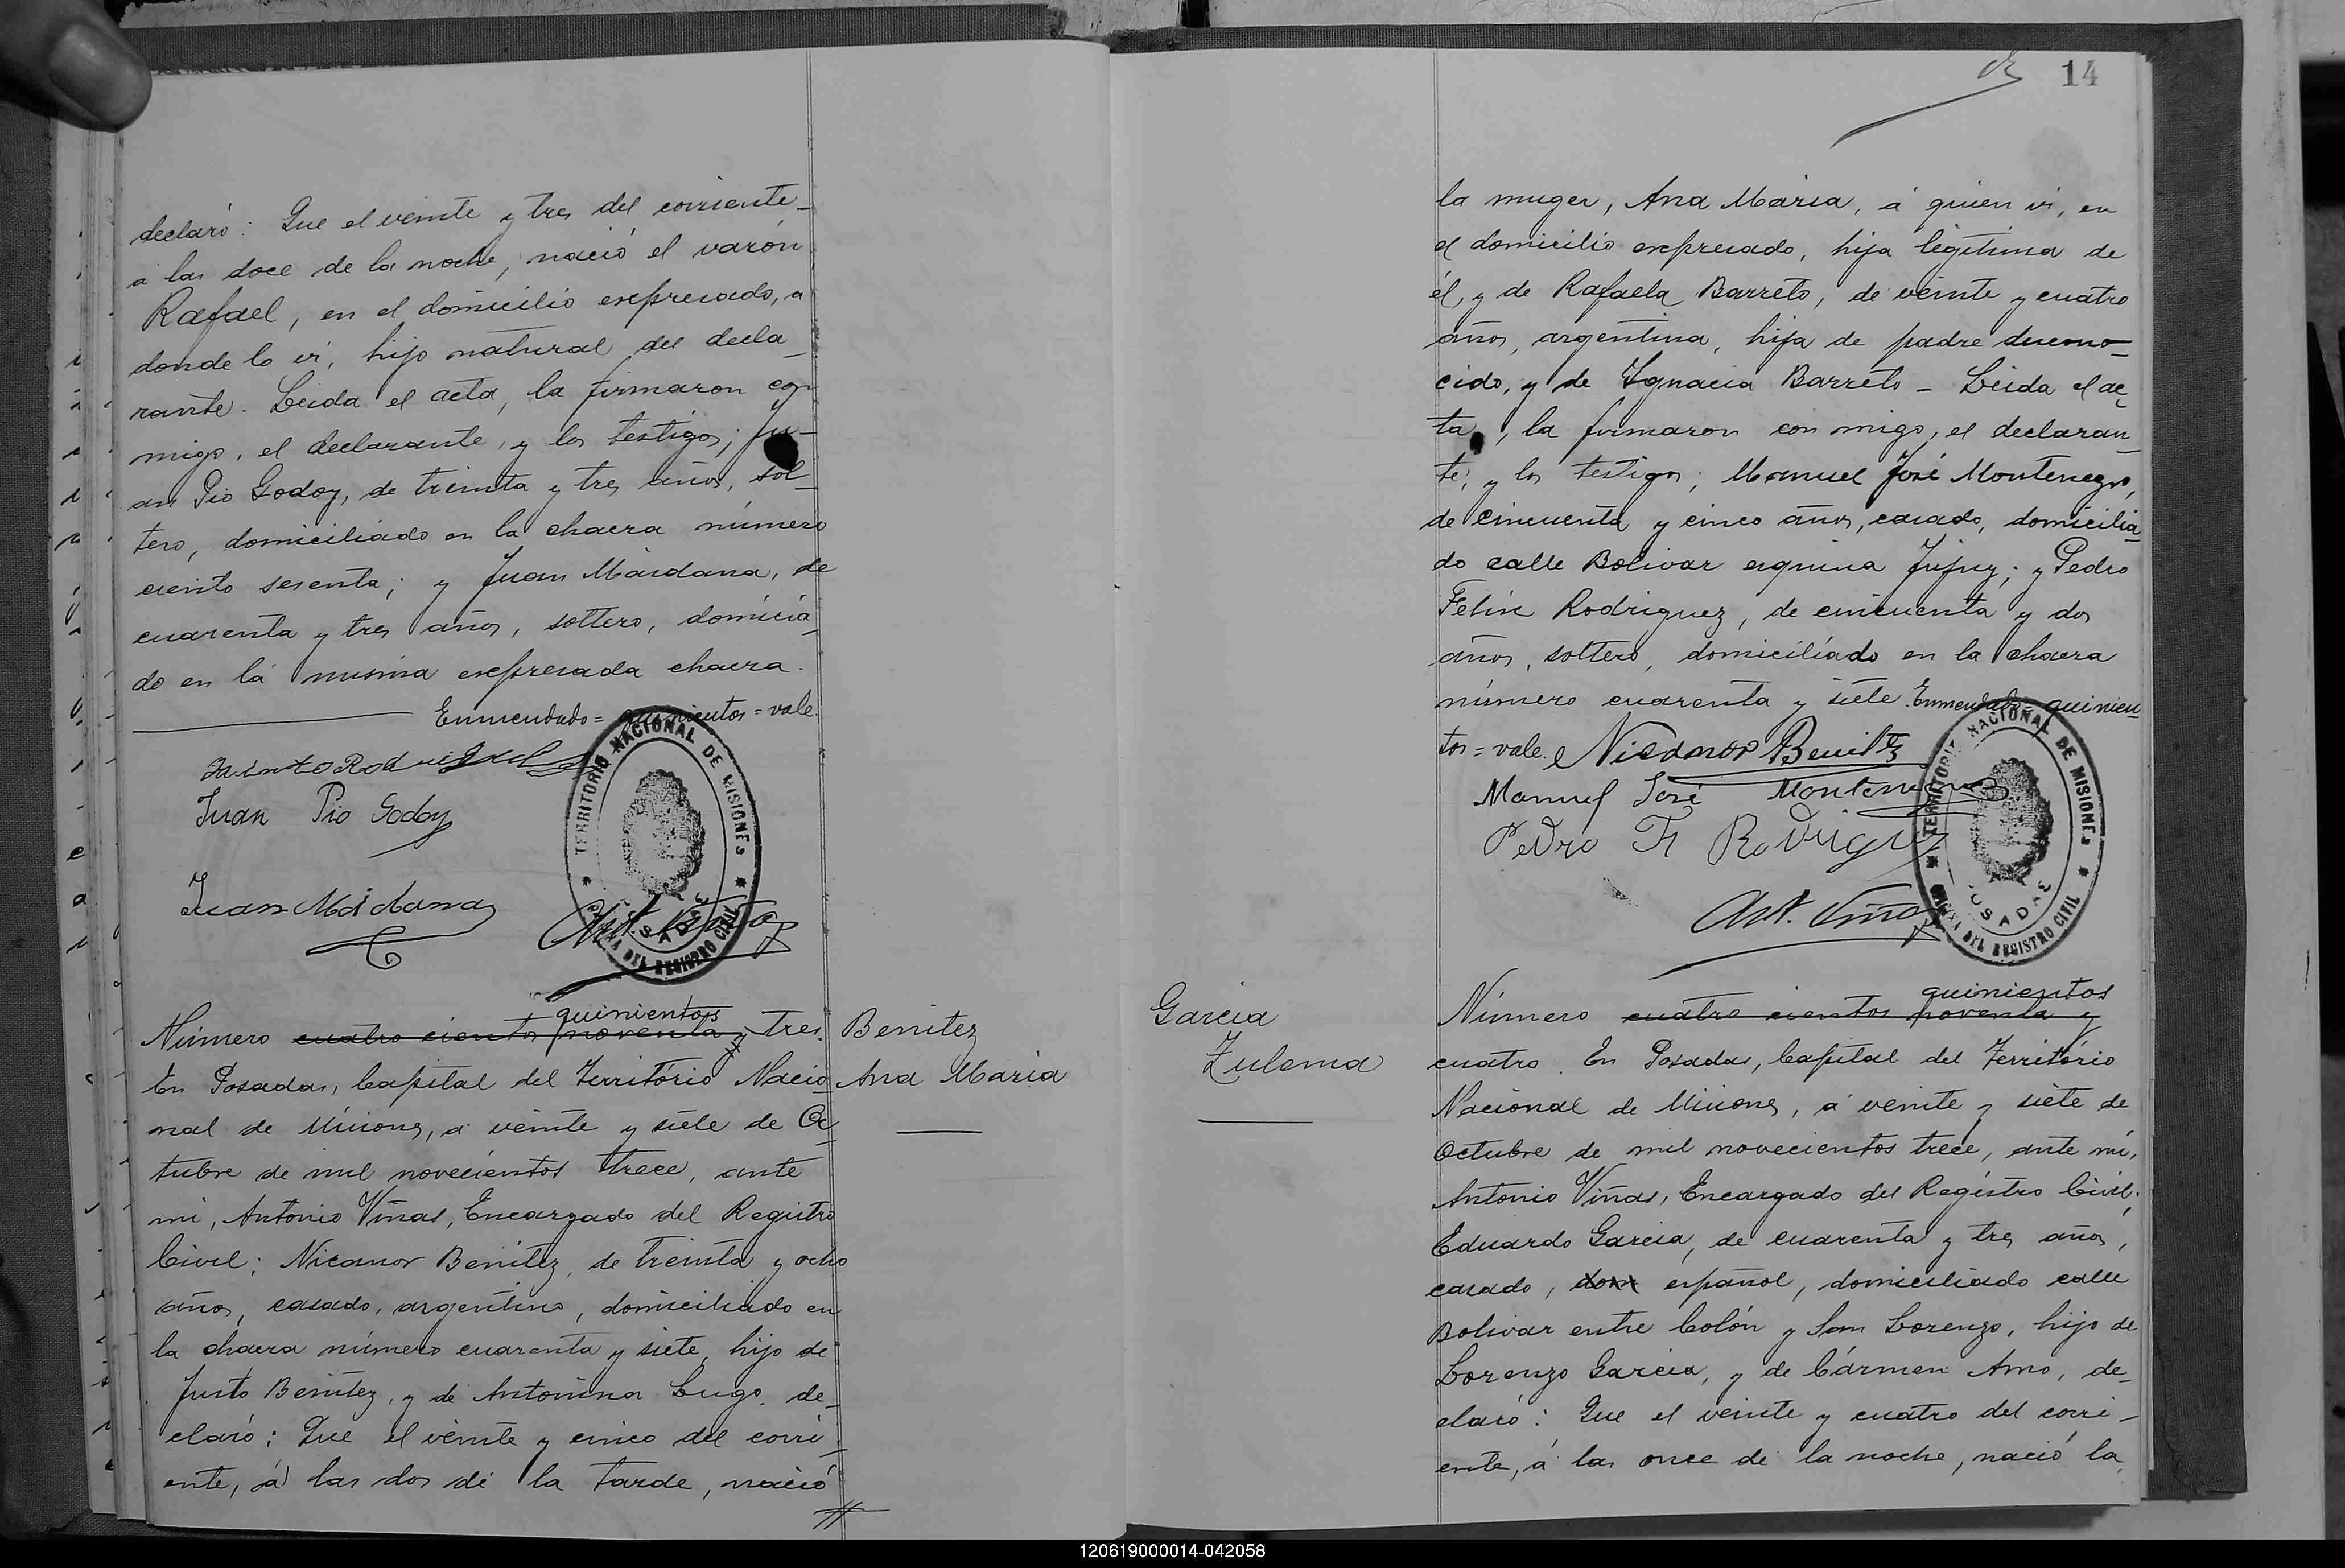 declaró: Que el veinte y tres del corriente
a las doce de la noche, nació el varón
Rafael, en el domicilio expresado, a
donde lo vi, hijo natural del decla-
rante. Leida el acta, la firmaron con
migo, el declarante, y los testigos; Ju-
an Pio Godoy, de treinta y tres años, sol-
tero, domiciliado en la chacra número
ciento sesenta; y Juan Maidana, de
cuarenta y tres años, soltero, domicia-
do en la misma expresada chacra.
Enmendado = quinientos = vale.
Juan Pio Godoy
Juan Maidana
Ant. Viñas
TERRITORIO NACIONAL DE MISIONES
OFICINA DEL REGISTRO CIVIL
POSADAS
quinientos
Número cuatro cientos noventa y tres.
En Posadas, Capital del Territorio Nacio-
nal de Misiones, a veinte y siete de Oc-
tubre de mil novecientos trece, ante
mi, Antonio Viñas, Encargado del Registro
Civil; Nicanor Benitez, de treinta y ocho
años, casado, argentino, domiciliado en
la chacra número cuarenta y siete, hijo de
Justo Benitez, y de Antonina Lugo, de-
claró: Que el veinte y cinco del corri-
ente, á las dos de la tarde, nació
Benitez
Ana Maria
14
la muger, Ana Maria, á quien vi, en
el domicilio expresado, hija legítima de
él, y de Rafaela Barreto, de veinte y cuatro
años, argentina, hija de padre descono-
cido, y de Ignacia Barreto - Leida el ac-
ta, la firmaron con migo, el declaran-
te, y los testigos; Manuel José Montenegro,
de cincuenta y cinco años, casado, domicilia-
do calle Bolivar esquina Jujuy; y Pedro
Felix Rodriguez, de cincuenta y dos
años, soltero, domiciliado en la chacra
número cuarenta y siete. Enmendado = quinien-
tos = vale. Nicanor Benitez
Manuel José Montenegro
Pedro F Rodriguez
Ant. Viñas
TERRITORIO NACIONAL DE MISIONES
OFICINA DEL REGISTRO CIVIL
POSADAS
Garcia
Zulema
quinientos
Número cuatro cientos noventa y
cuatro. En Posadas, Capital del Territorio
Nacional de Misiones, á veinte y siete de
Octubre de mil novecientos trece, ante mi,
Antonio Viñas, Encargado del Registro Civil;
Eduardo Garcia, de cuarenta y tres años,
casado, dom español, domiciliado calle
Bolivar entre Colón y San Lorenzo, hijo de
Lorenzo Garcia, y de Cármen Amo, de-
claró: Que el veinte y cuatro del corri-
ente, á las once de la noche, nació la
120619000014-042058